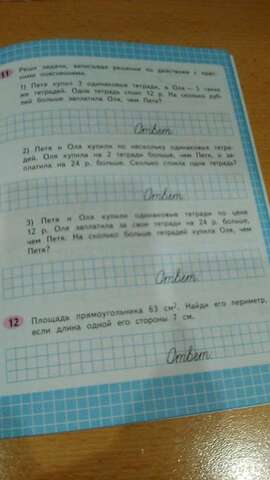 11 Реши задачи, записывая решение по действиям с крат-
кими пояснениями.
1) Петя купил 3 одинаковые тетради, а Оля — 5 таких
же тетрадей. Одна тетрадь стоит 12 р. На сколько руб-
лей больше заплатила Оля, чем Петя?
Ответ:
2) Петя и Оля купили по нескольку одинаковых тетра-
дей. Оля купила на 2 тетради больше, чем Петя, и за-
платила на 24 р. больше. Сколько стоила одна тетрадь?
Ответ:
3) Петя и Оля купили одинаковые тетради по цене
12 р. Оля заплатила за свои тетради на 24 р. больше,
чем Петя. На сколько больше тетрадей купила Оля, чем
Петя?
Ответ:
12 Площадь прямоугольника 63 см². Найди его периметр,
если длина одной его стороны 7 см.
Ответ: